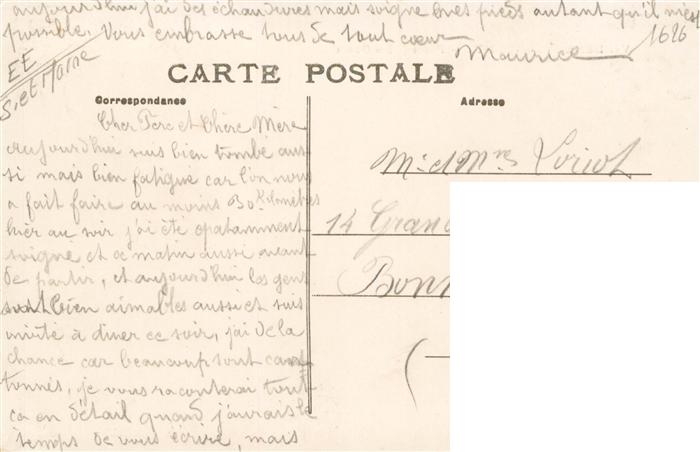 aujourd'hui j'ai des échaudures mais soigne mes pieds autant qu'il m'est
possible. Vous embrasse tous de tout cœur
Maurice
1626
EE
S. et Marne
CARTE POSTALE
Correspondance
Adresse
Cher Père et Chère Mère
aujourd'hui suis bien tombé aus-
si mais bien fatigué car l'on nous
a fait faire au moins 30 Kilomètres
hier au soir j'ai été épatamment
soigné et ce matin aussi avant
de partir, et aujourd'hui les gens
sont bien aimables aussi et suis
invité à diner ce soir, j'ai de la
chance car beaucoup sont can-
tonnés, je vous raconterai tout
ca en détail quand j'aurais le
temps de vous écrire, mais
Mr et Mme Loriot
14 Gran
Bonn
(